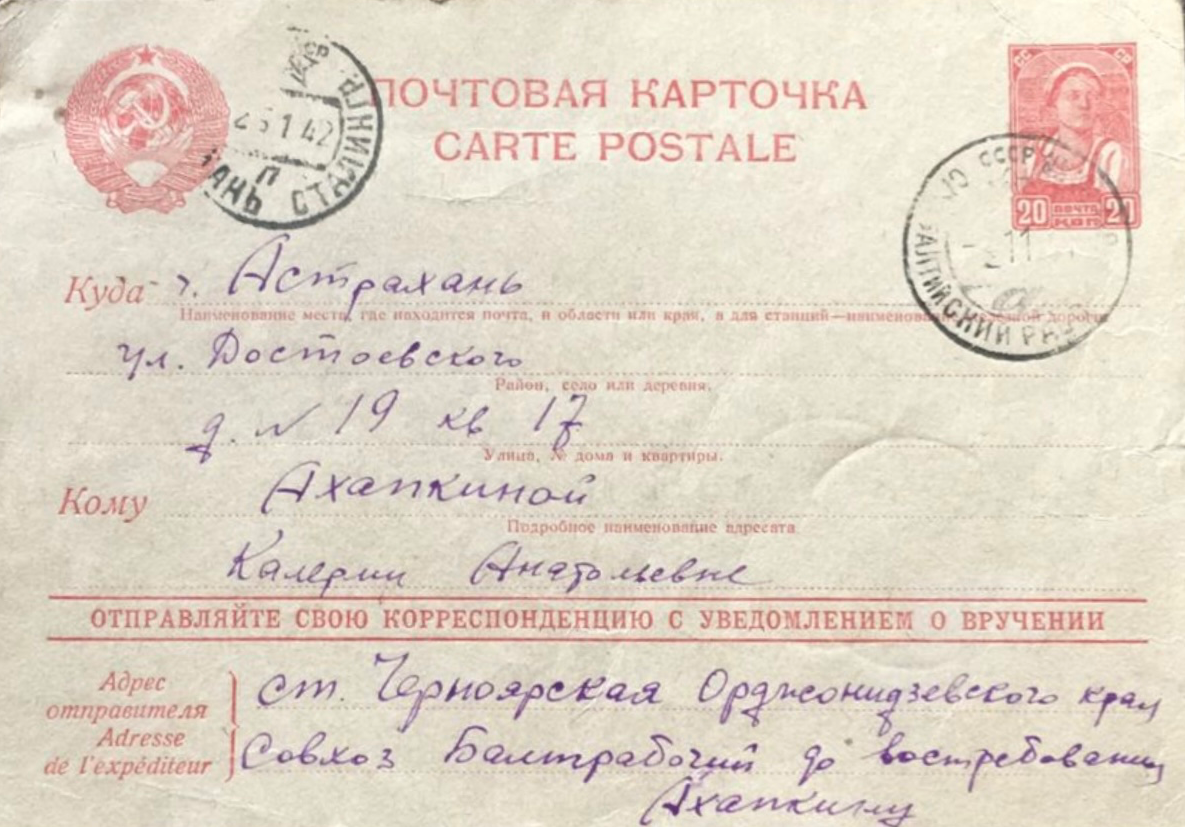 ПОЧТОВАЯ КАРТОЧКА
CARTE POSTALE
СС СР
20 ПОЧТА КОП 20
25 1 42
П
СТАЛИНГР
АНЬ
СССР
11
АЛТИЙСКИЙ
Куда г. Астрахань
Наименование места, где находится почта, и области или края, а для станций—наименование железной дороги
ул. Достоевского
Район, село или деревня.
д. № 19 кв 17
Улица, № дома и квартиры.
Кому Ахапкиной
Подробное наименование адресата
Калерии Анатольевне
ОТПРАВЛЯЙТЕ СВОЮ КОРРЕСПОНДЕНЦИЮ С УВЕДОМЛЕНИЕМ О ВРУЧЕНИИ
Адрес отправителя
Adresse de l'expéditeur
ст. Черноярская Орджонидзевского края
Совхоз Балтрабочий до востребования
Ахапкину